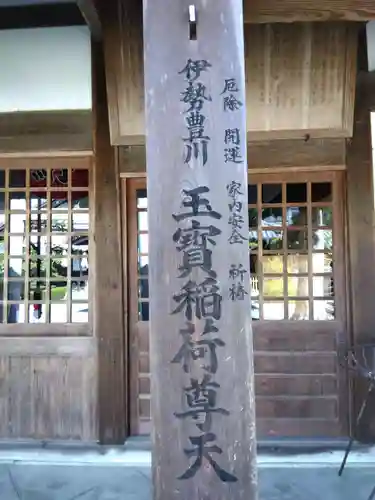 厄除 開運 家内安全 祈祷
伊勢豊川
玉寳稲荷尊天